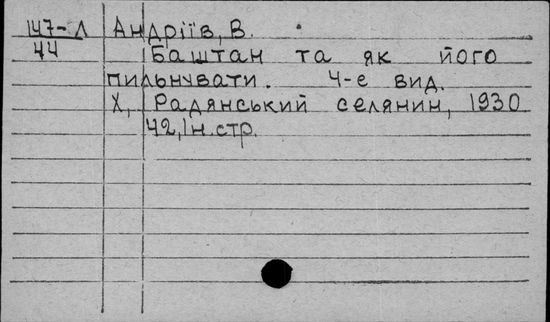 147-Л Андріїв, В.
44 Баштан та як його
пильнувати. 4-е вид.
Х, Радянський селянин, 1930
42, Iн.стр.